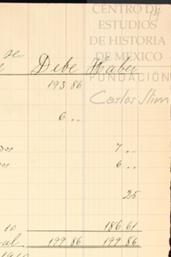 CENTRO DE
ESTUDIOS
DE HISTORIA
DE MEXICO
FUNDACIÓN
Carlos Slim
se
Debe Haber
193 86
6 ..
7 ..
6 ..
25
10 186.61
199.86 199.86
1910